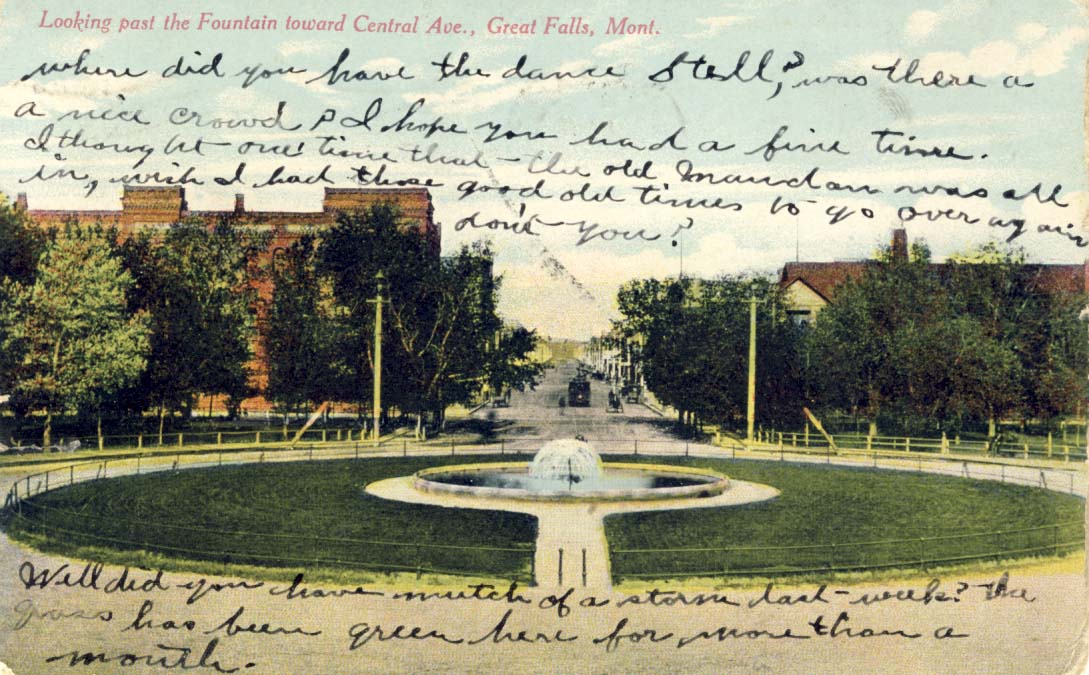 Looking past the Fountain toward Central Ave., Great Falls, Mont.
where did you have the dance Stell, ? was there a
a nice crowd ? I hope you had a fine time.
I thought one time that - the old Mandan was all
in, wish I had those good old times to go over again
don't you?
Well did you have mutch of a storm last - week? the
grass has been green here for more than a
month.